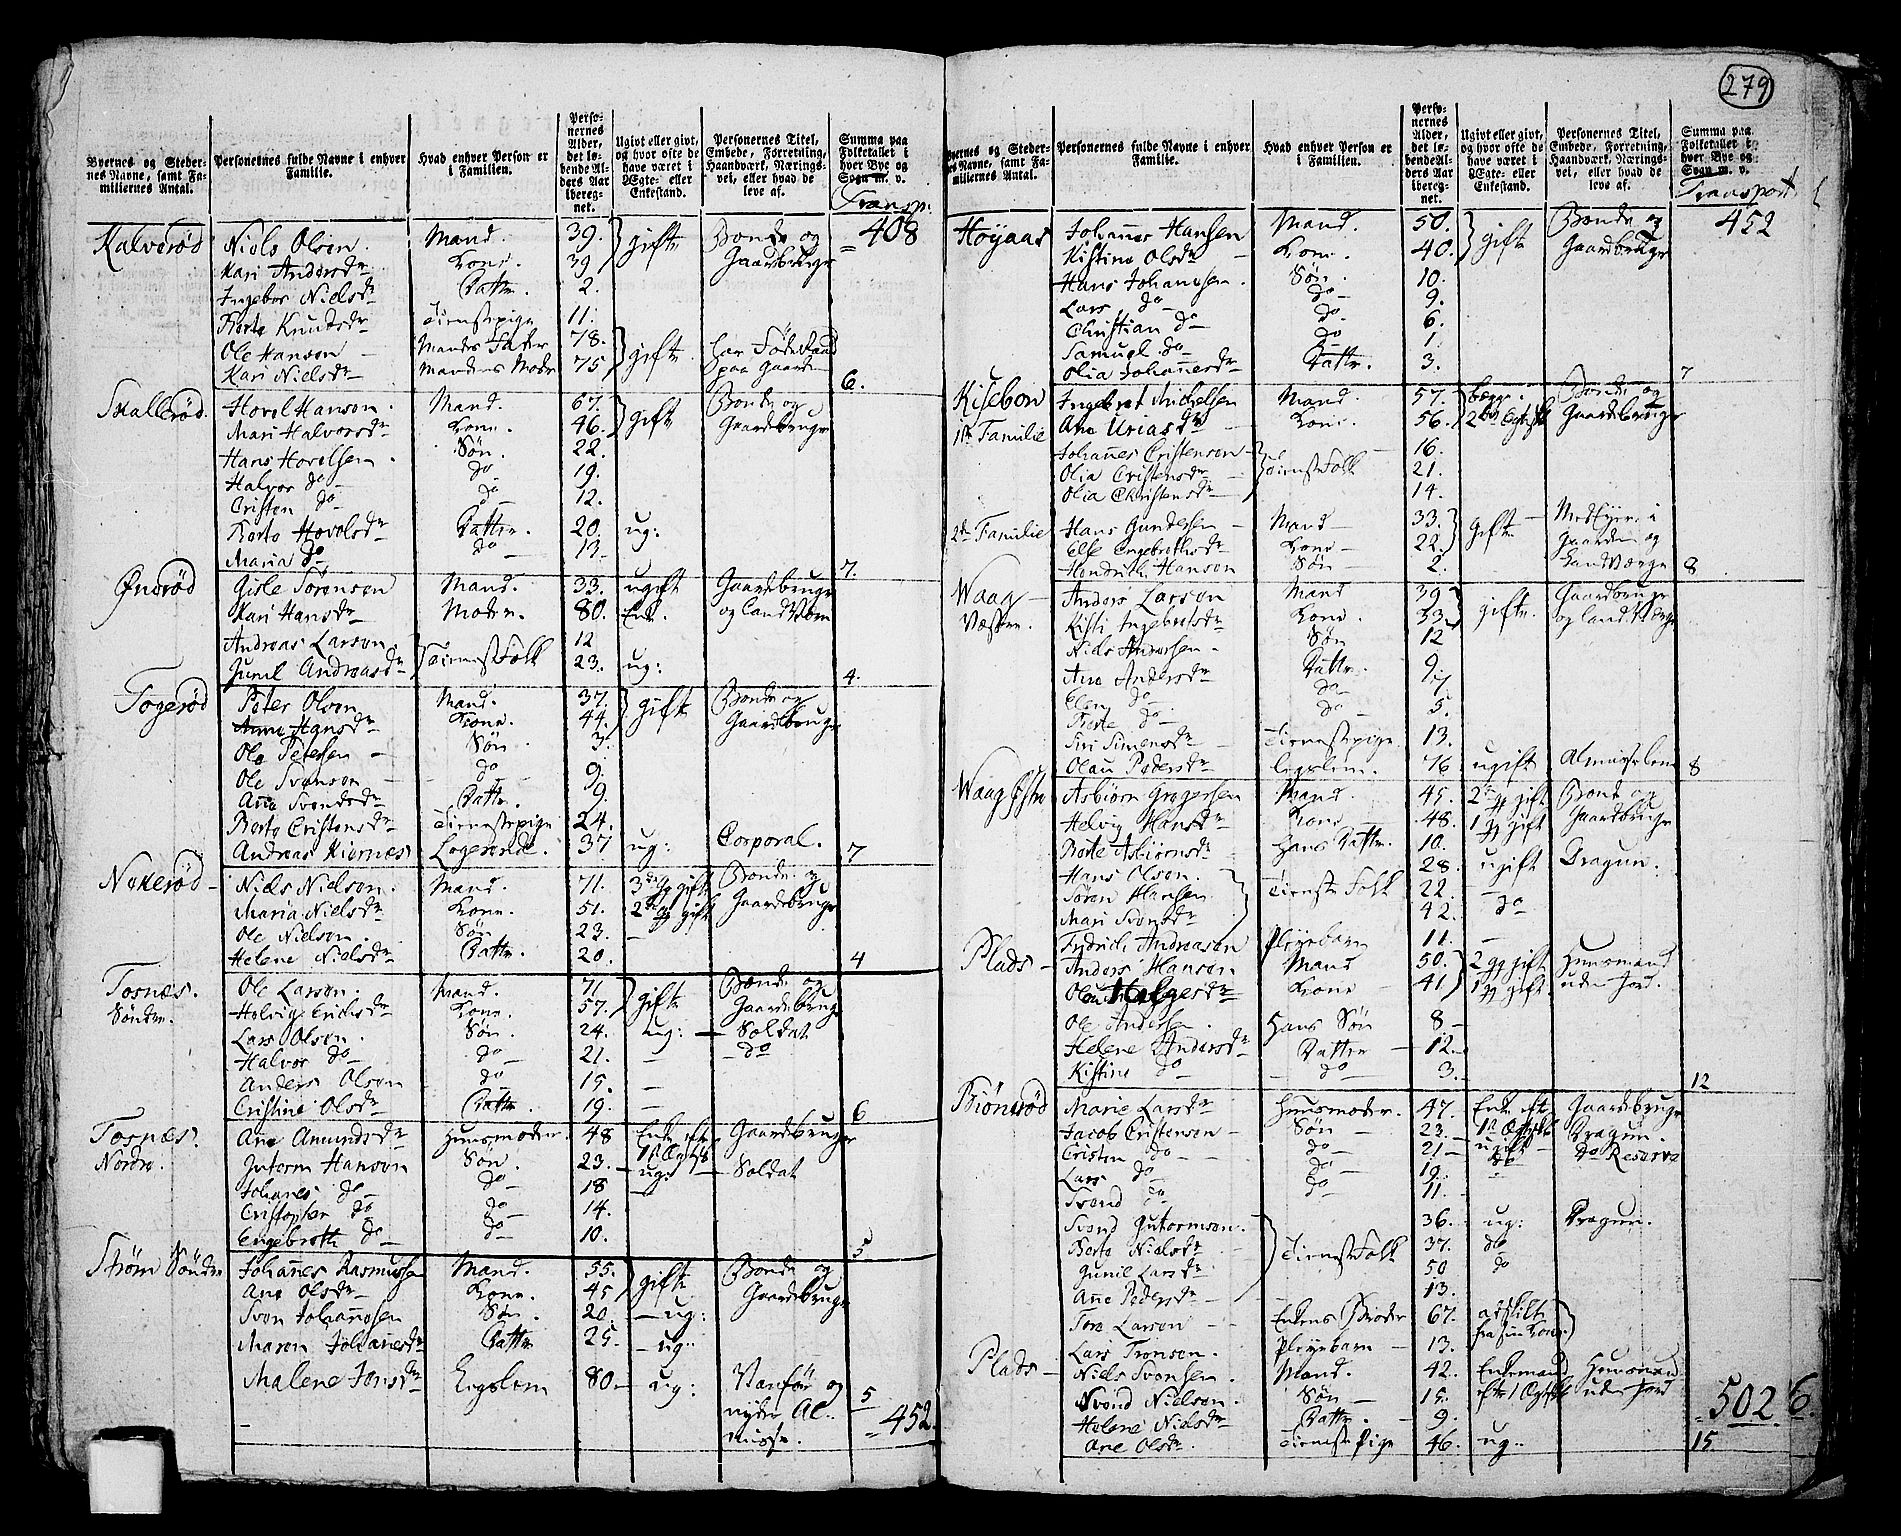 279
Byernes og Stedernes Navne, samt Familiernes Antal.
Personernes fulde Navne i enhver Familie.
Hvad enhver Person er i Familien.
Personernes Alder, det løbende Alders Aar iberegnet.
Ugivt eller givt, og hvor ofte de have været i Ægte- eller Enkestand.
Personernes Titel, Embede, Forretning, Haandværk, Næringsvei, eller hvad de leve af.
Summa paa Folketallet i hver Bye og Sogn m. v.
Transp.
Kalverød Niels Olsen. Mand. 39. gifte Bonde og = 408
Kari Andersdr Kone. 39 Gaardbruger
Ingebor Nielsdr Datter. 2.
Berte Knudsdr Tienestepige 11.
Ole Hansen Mandes Fader 78. gifte har Føderaad
Kari Nielsdr Mandens Moder 75 paa Gaarden 6.
Skallerød. Hovel Hansen. Mand. 67. gifte Bonde og
Mari Halvorsdr Kone. 46. Gaardbruger
Hans Hovelsen. Søn. 22.
Halvor do do 19.
Cristen do do 12.
Berte Hovelsdr Datter. 20. ug:
Maria do do 13. 7.
Ønsrød Gisle Sørensen Mand. 33. ugift Gaardbruger
Kari Hansdr Moder. 80. Enke og landVærn
Andreas Larsen TienesteFolk 12
Gunil Andreasdr 23. ug: 4.
Togerød Peter Olsen Mand. 37. gifte Bonde og
Anne Hansdr Kone. 44. Gaardbruger
Ole Petersen Søn. 3.
Ole Svensen do 9.
Ane Svendsdr Datter. 9.
Berte Cristensdr Tienestepige 24.
Andreas Kiernes Logerende. 37 ug: Corporal. 7
Nokerød Niels Nielsen. Mand. 71. 3die gg gift Bonde og
Maria Nielsdr Kone. 51. 2de gg gift Gaardbruger
Ole Nielsen. Søn 23.
Helene Nielsdr Datter. 20. 4
Tosnes. Ole Larsen. Mand. 71 gifte Bonde og
Søndre. Helvig Erichsdr Kone. 57. Gaardbruger
Lars Olsen. Søn 24. ug: Soldat
Halvor do do 21. do
Anders Olsen do 15.
Cristine Olsdr Datter. 19. 6
Tosnes. Ane Amundsdr Huusmoder. 48 Enke efter Gaardbruger
Nordre. Gutorm Hansen Søn. 23. 1te Ægtesk ug: Soldat
Johanes do do 18
Cristopher do do 14.
Engebreth do do 10. 5
Strøm Søndre Johannes Rasmussen Mand. 55. gifte Bonde og
Ane Olsdr Kone. 45 Gaardbruger
Sven Johannesen Søn 20. ug:
Maren Johanesdr Datter 25. ug:
Malene Jonsdr Legslem 80 ug: Vanfør og 5
nyder Al- = 452
misse.
Byernes og Stedernes Navne, samt Familiernes Antal.
Personernes fulde Navne i enhver Familie.
Hvad enhver Person er i Familien.
Personernes Alder, det løbende Alders Aar iberegnet.
Ugivt eller givt, og hvor ofte de have været i Ægte- eller Enkestand.
Personernes Titel, Embede, Forretning, Haandværk, Næringsvei, eller hvad de leve af.
Summa paa Folketallet i hver Bye og Sogn m. v.
Transport
Høyaas Johannes Hansen Mand. 50. gifte Bonde og 452
Kistine Olsdr Kone. 40. Gaardbruger
Hans Johannsen. Søn. 10.
Lars do do 9.
Christian do do. 6.
Samuel do do 1.
Olia Johannesdr Datter. 3. 7
Kisebon Ingebret Michelsen Mand. 57. begge Bonde og
1te Familie Ane Uriasdr Kone. 56. 2det Egtesk Gaardbruger
Johannes Cristensen TienesteFolk 16.
Olia Cristensdr 21.
Olia Christensdr 14.
2de Familie Hans Gundersen Mand 33. gifte Medeyer i
Else Engebrethsdr Kone 22. Gaarden og
Hendrich Hansen Søn 2. LandVærge 8
Waag Anders Larsen Mand 39 gifte. Gaardbruger
Væstre. Kisti Ingebretsdr Kone. 33. og landVærge
Niels Andersen Søn 12
Ane Andersdr Datter. 9.
Elen do do 7
Berte do do 5.
Siri Simensdr Tienestepige 13.
Olau Pedersdr Legslem. 76 ugift Almisselem 8
Waag Østre Asbiørn Gregersen Mand. 45. 2de gg gift Bonde og
Helvig Hansdr Kone 48. 1 gg gift Gaardbruger
Berte Asbiørnsdr Hans Datter. 10.
Hans Olsen. TienesteFolk 28. ugift Dragun.
Søren Hansen 22.
Mari Svensdr 42. do
Fridrich Andreasen Pleyebarn 11.
Plads Anders Hansen Mand 50. 2 gg gift Huusmand
Olau Helgesdr Kone 41 1 gg gift uden Jord.
Ole Andersen. Hans Søn 8
Helene Andersdr Datter 12
Kistine do do 3. 12
Biønrød Marie Larsdr Huusmoder. 47. Enke efter Gaardbruger
Jacob Cristensen Søn 23. 1te Ægtesk ugift Dragun.
Cristen do do 21 do do Reserve
Lars do do 19.
Svend do do 11.
Svend Gutormsen. TienesteFolk 36. ug: Dragun.
Berte Nielsdr 37. do
Gunil Larsdr 50 do
Anne Pedersdr 13.
Tore Larsen Enkens Broder 67. adskilt fra sin Kone
Lars Tronsen. Pleyebarn 13.
Plads Niels Svensen. Mand. 42. Enkemand Huusmand
Svend Nielsen. Søn 15. efter 1 Ægtesk uden Jord
Helene Nielsdr Datter. 9. 502. 6.
Ane Olsdr. Tieneste Pige 46. ug: 15